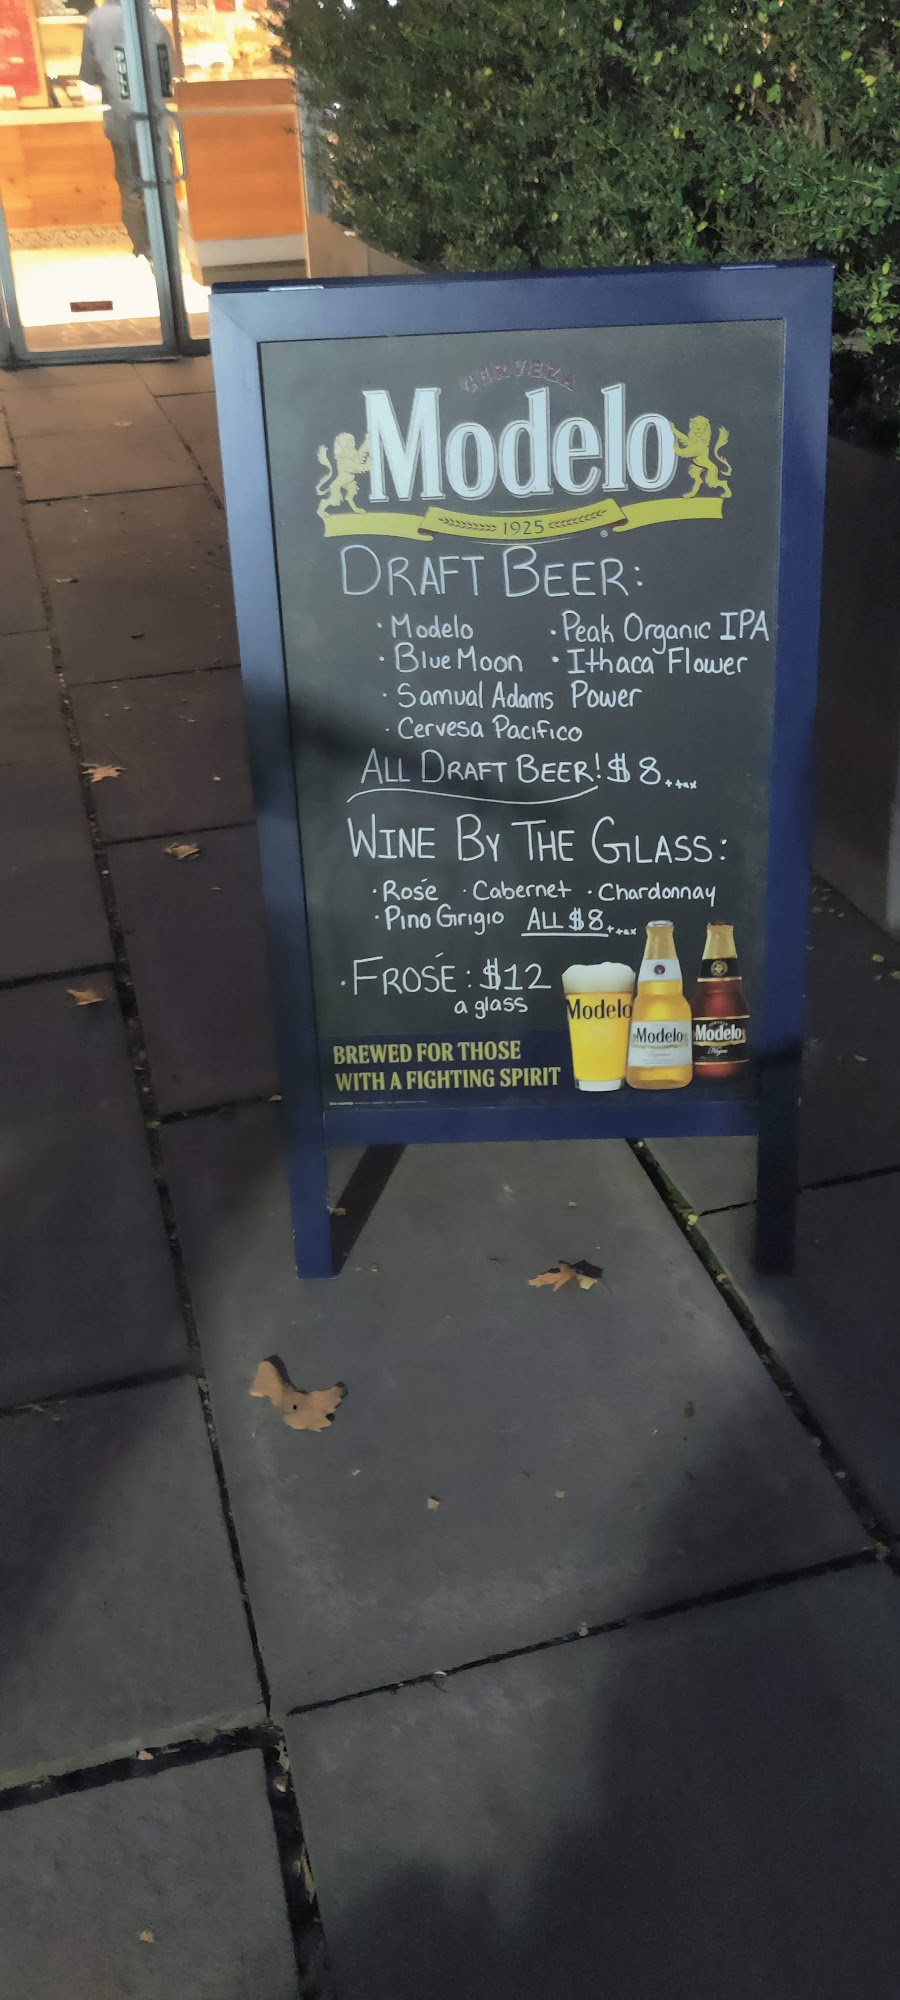 CERVEZA
Modelo
1925
DRAFT BEER:
· Modelo · Peak Organic IPA
· Blue Moon · Ithaca Flower
· Samual Adams Power
· Cervesa Pacifico
ALL DRAFT BEER! $8 + tax
WINE BY THE GLASS:
· Rosé · Cabernet · Chardonnay
· Pino Grigio ALL $8 + tax
· FROSÉ: $12
a glass
Modelo
Modelo
Modelo
Negra
BREWED FOR THOSE
WITH A FIGHTING SPIRIT